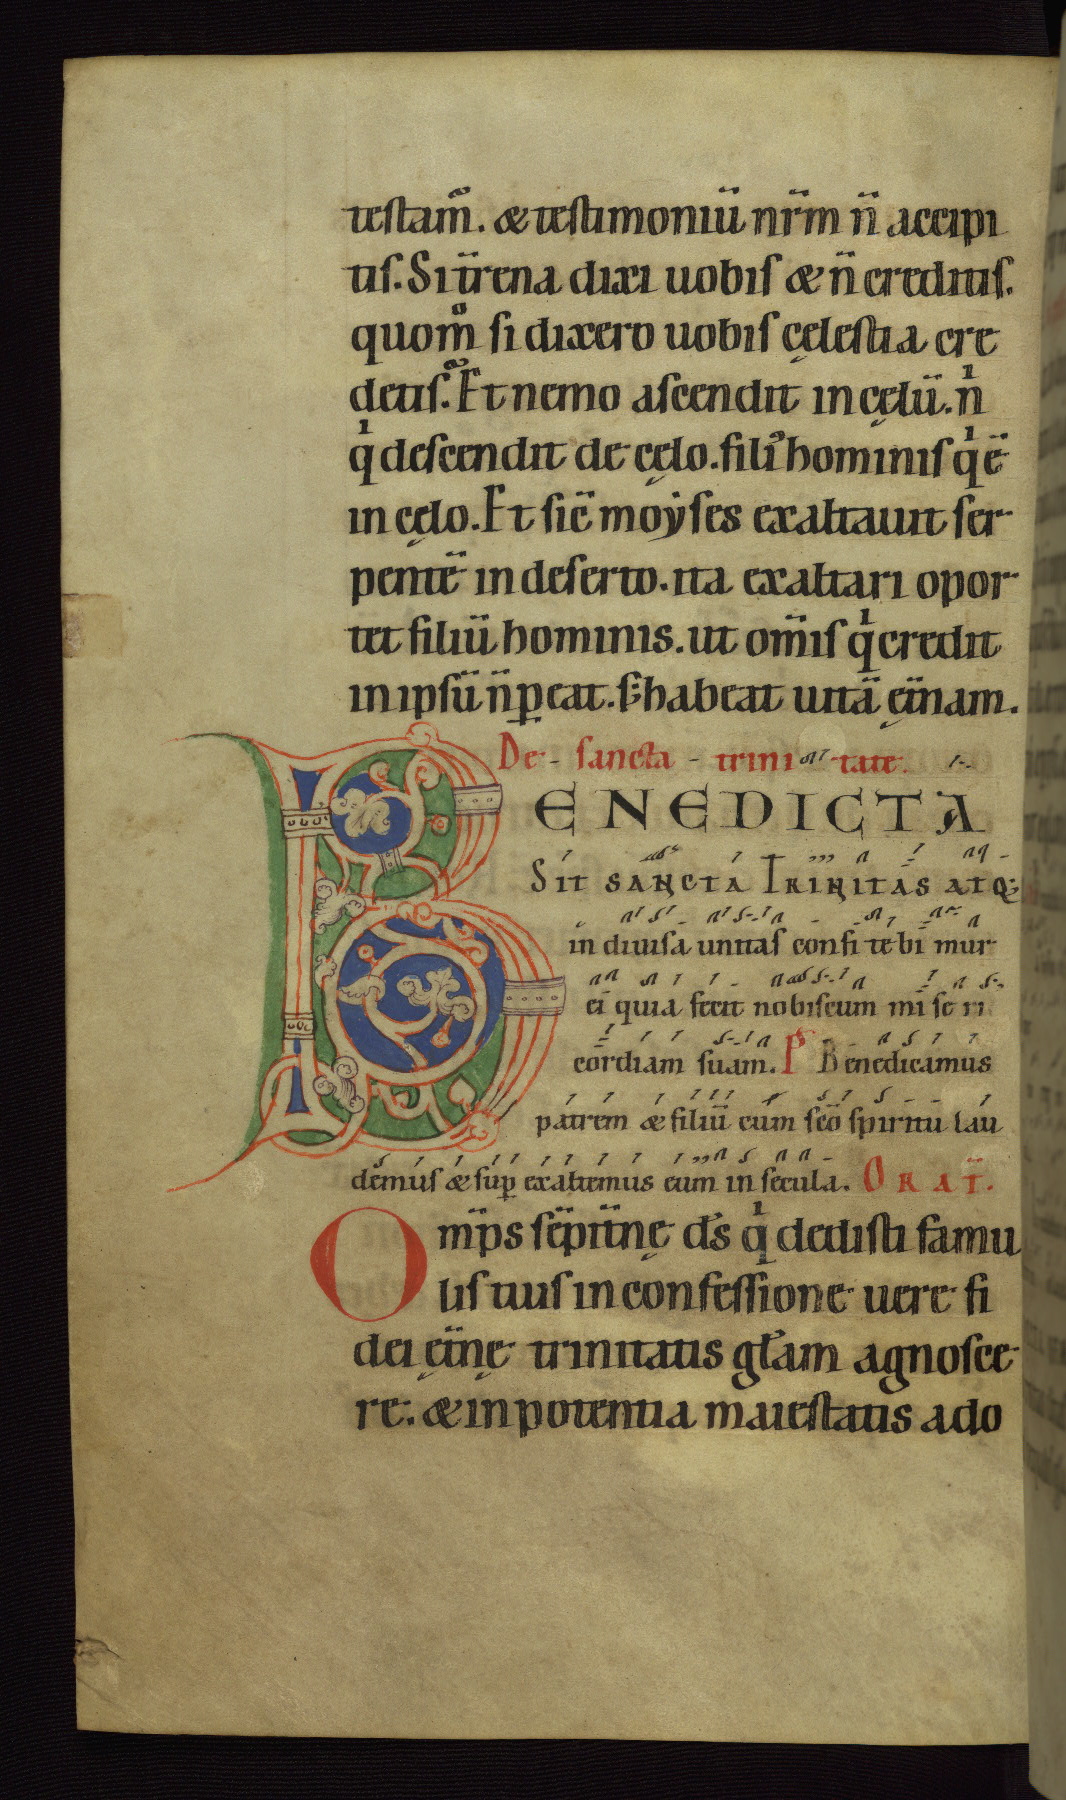 testam̄. & testimoniū nr̄m n̄ accipi
tis. Si t̄rena dixi uobis & n̄ creditis.
quom̊ si dixero uobis cęlestia cre
detis. Et nemo ascendit in cęlū. nͥ
qͥ descendit de cęlo. fili᾽ hominis qͥ ē
in cęlo. Et sic̄ moẏses exaltauit ser
pentē in deserto. ita exaltari opor
tet filiū hominis. ut om̄is qͥ credit
in ipsū n̄ ꝑeat. s; habeat uitā ęt̄nam.
De sancta trinitate.
BENEDICTA
Sit sancta Trinitas atq;
in diuisa unitas confitebi mur
ei quia fecit nobiscum mi se ri
cordiam suam. P̄s Benedicamus
patrem & filiū cum sc̄o spiritu lau
demus & suꝑ exaltemus eum in secula. ORAT̄.
Om̄ps sēpit̄nę ds̄ qͥ dedisti famu
lis tuis in confessione uere fi
dei ęt̄nę trinitatis gl̄am agnosce
re. & in potentia maiestatis ado